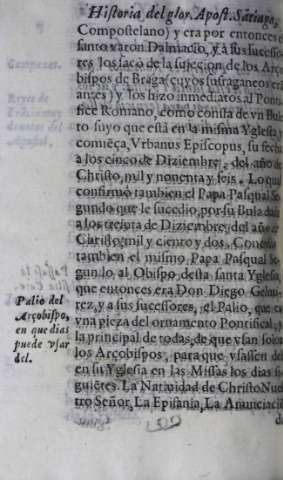 Historia del glor. Apost. Sātiago,
Compostelano) y era por entonces el
santo varon Dalmacio, y à sus successo
res los sacò de la sujecion de los Arço
bispos de Braga (cuyos sufraganeos erā
antes) y los hizo inmediatos al Ponti
fice Romano, como consta de vn Bula
to suyo que està en la misma Yglesia, y
comiēça, Vrbanus Episcopus, su fecha
a los cinco de Diziembre, del año de
Christo, mil y nouenta y seis. Lo qual
confirmò tambien el Papa Pasqual Se
gundo que le sucedio, por su Bula dada
a los treinta de Diziembre, del año de
Christo, mil y ciento y dos. Concedio
tambien el mismo Papa Pasqual Se
gundo, al Obispo desta santa Yglesia,
que entonces era Don Diego Gelmi
rez, y a sus sucessores, el Palio, que es
vna pieza del ornamento Pontifical, y
la principal de todas, de que vsan solos
los Arçobispos, para que vsassen del
en su Yglesia en las Missas los dias si
guiētes. La Natiuidad de Christo Nues
tro Señor, La Epifania, La Anunciaciō
de
Palio del
Arçobispo,
en que dias
puede vsar
del.